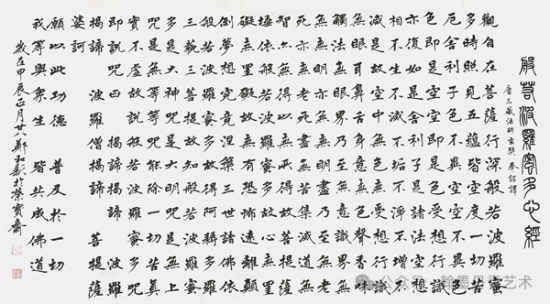 般若波羅蜜多心經
唐三藏法師玄奘奉詔譯
觀自在菩薩行深般若波羅蜜
多時照見五蘊皆空度一切苦
厄舍利子色不異空空不異色
色即是空空即是色受想行識
亦復如是舍利子是諸法空
相不生不滅不垢不淨不增不
減是故空中無色無受想行識
無眼耳鼻舌身意無色聲香味
觸法無眼界乃至無意識界
無無明亦無無明盡乃至無老
死亦無老死盡無苦集滅道無
智亦無得以無所得故菩提薩
埵依般若波羅蜜多故心無罣
礙無罣礙故無有恐怖遠離顛
倒夢想究竟涅槃三世諸佛依
般若波羅蜜多故得阿耨多羅
三藐三菩提故知般若波羅蜜
多是大神咒是大明咒是無上
咒是無等等咒能除一切苦真
實不虛故說般若波羅蜜多咒
即說咒曰 揭諦揭諦 波羅
揭諦 波羅僧揭諦 菩提薩
婆訶
願以此功德 普及於一切
我等與眾生 皆共成佛道
歲在甲辰正月廿八鄭和新於榮寶齋
公众号